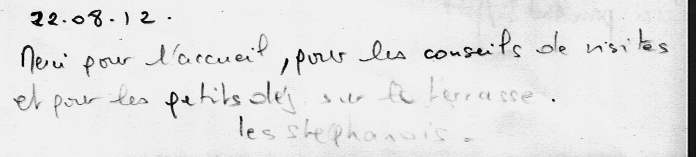 22.08.12.
Merci pour l'accueil, pour les conseils de visites
et pour les petits dej sur la terrasse.
les stephanois.